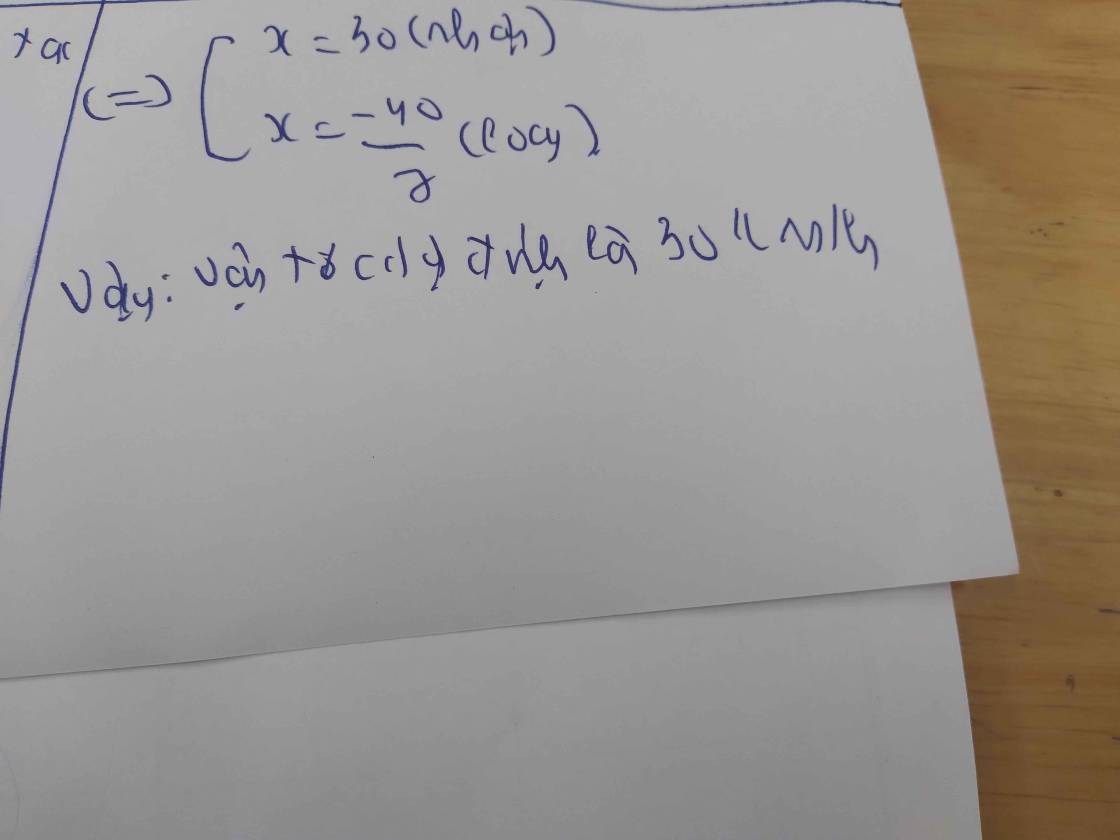 (=) [ x = 30 (nhận)
x = -40/7 (loại)
Vậy: vận tốc dự định là 30 km/h